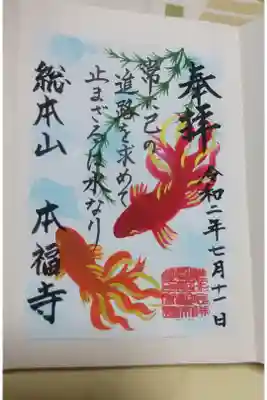 奉拝
令和二年七月十一日
常に己の
進路を求めて
止まざるは水なり
総本山 本福寺